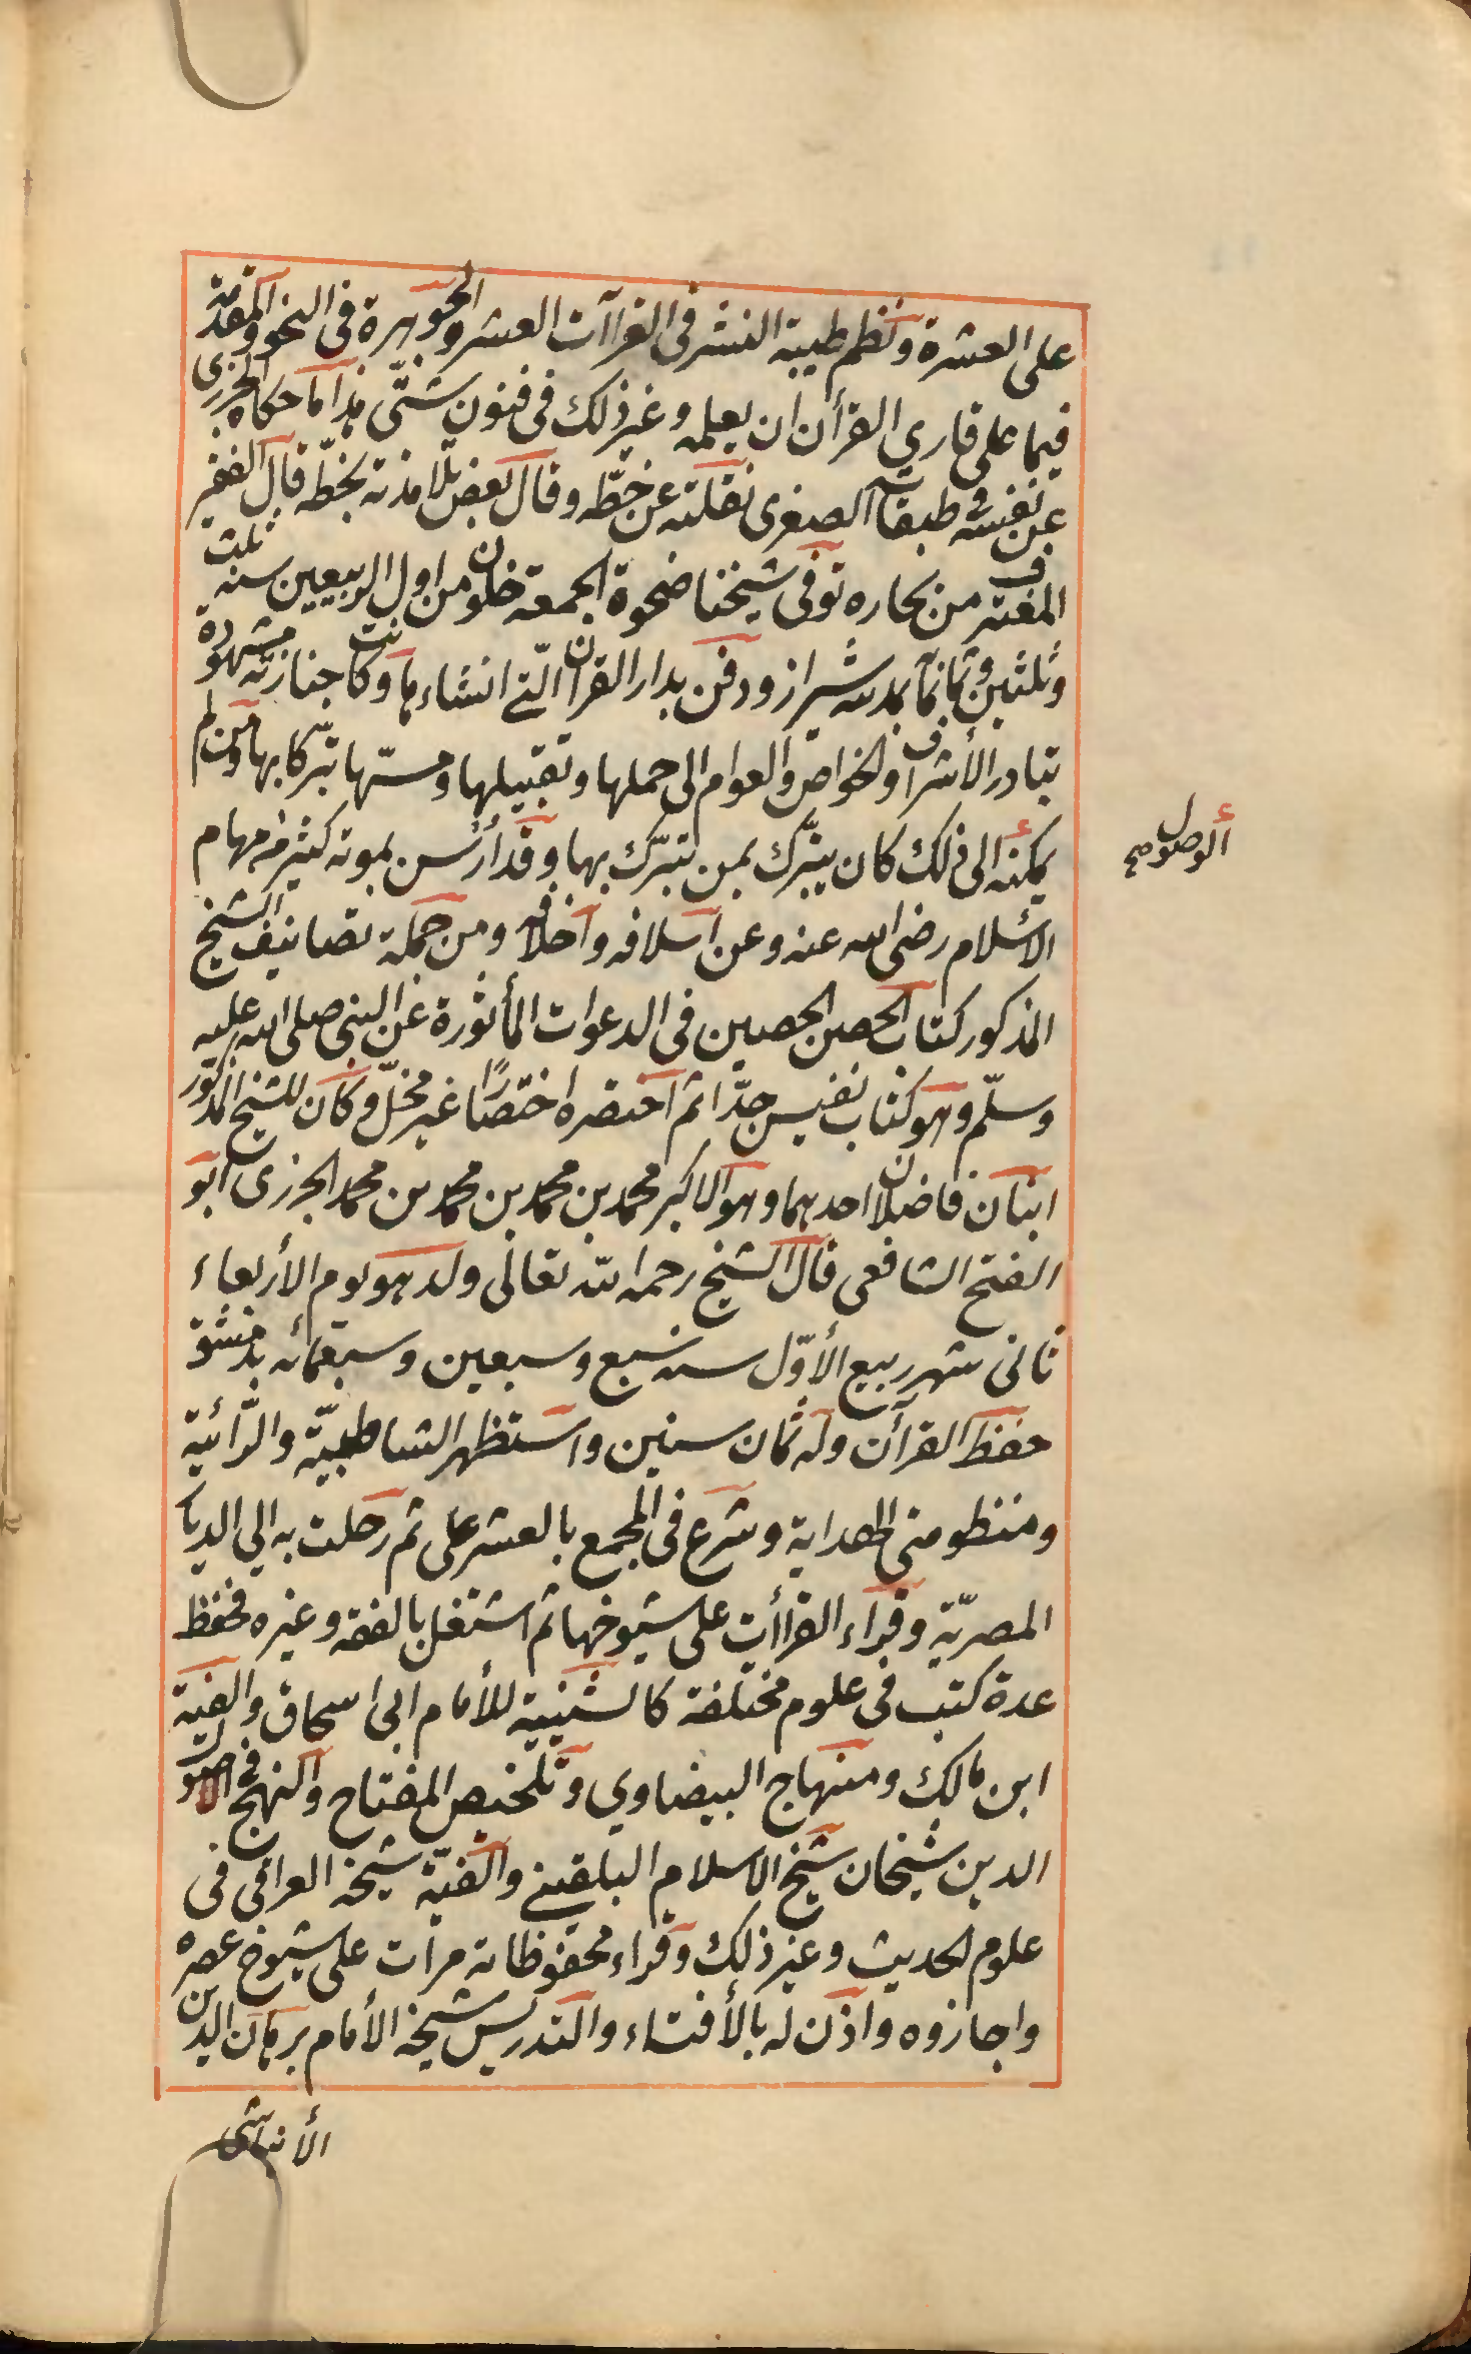 على العشرة ونظم طيبة النشر فى القراآت العشر والجوهرة فى النحو والمقدمة
فيما على قارى القرأن ان يعلمه وغير ذلك فى فنون شتّى هذا ما حكاه الجزرى
عن نفسه فى طبقاته الصغرى نقلته عن خطّه وقال بعض تلامذته بخطّه قال الفقير
المغترف من بحاره توفى شيخنا ضحوة الجمعة خلون من اول الربيعين سنه ثلث
وثلثين وثمانمآ بمدينه شيراز ودفن بدار القرأن الّتى انشاءها وكانت جنازته مشهودة
تبادر الأشراف والخواص والعوام الى حملها وتقبيلها ومسّها تبرّكا بها ومن لم
يمكنه الى ذلك كان يتبرّك بمن تبرّك بها وقد أندرس بموته كثير من مهام
الاسلام رضى الله عنه وعن اسلافه واخلافه ومن جملة تصانيف الشيخ
المذكور كتاب الحصن الحصين فى الدعوات المأثورة عن النبى صلى الله عليه
وسلّم وهو كتاب نفيس جدّا ثم اختصره اختصارًا غير مخلّ وكان للشيخ المذكور
ابنان فاضلان احدهما وهو الاكبر محمد بن محمد بن محمد بن محمد الجزرى ابو
الفتح الشافعى قال الشيخ رحمه الله تعالى ولد هو يوم الأربعاء
ثانى شهر ربيع الأوّل سنه سبع وسبعين وسبعمائه بدمشق
حفظ القرآن وله ثمان سنين واستظهر الشاطبيّة والرّائية
ومنظومتى الهداية وشرع فى الجمع بالعشر على ثم رحلت به الى الديا
المصريّة وقراء القراأت على شيوخها ثم اشتغل بالفقه وغيره فحفظ
عدة كتب فى علوم مختلفة كالتنبيه للأمام ابى اسحاق والفية
ابن مالك ومنهاج البيضاوي وتلخيص المفتاح والنهج فى اصول
الدين شيخان شيخ الاسلام البلقينى والفيّة شيخه العراقى فى
علوم الحديث وغير ذلك وقراء محفوظاته مرات على شيوخ عصره
واجازوه واذن له بالأفتاء والتدريس شيخه الأمام برهان الدين
الأنباسى
ألوصول صح